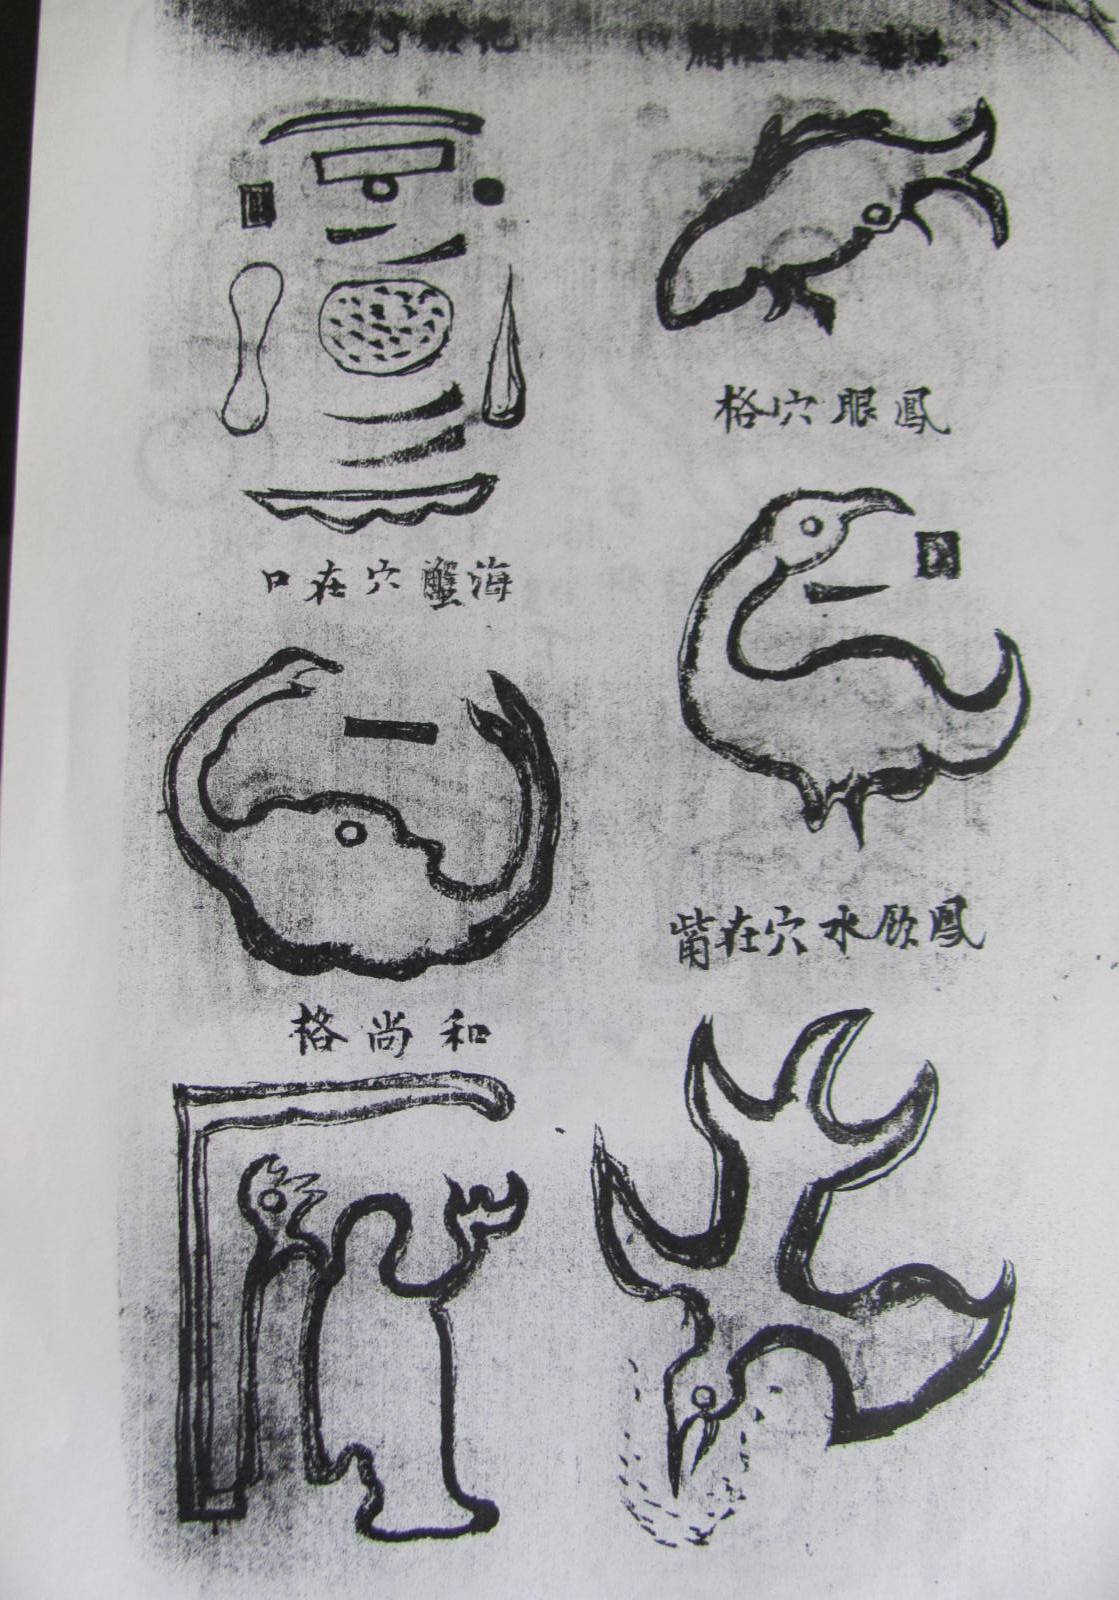 鳳眼穴格
鳳飲水穴在觜
海蟹穴在口
和尚格